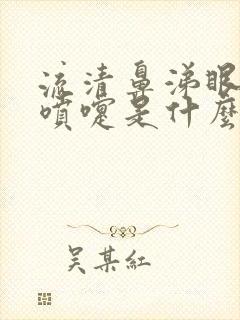 流清鼻涕眼
噴嚏是什麼
吴某紅